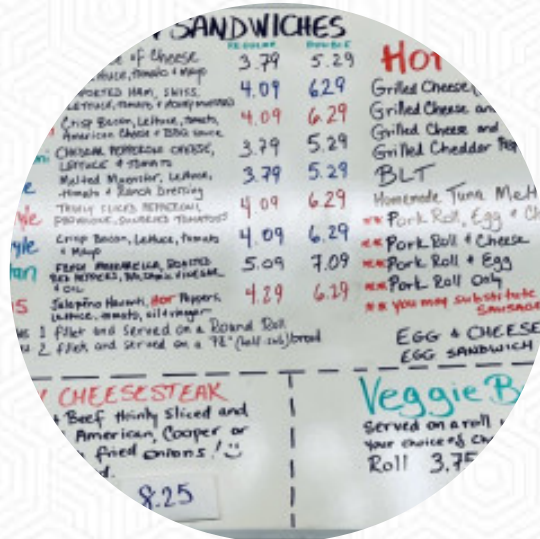 SANDWICHES
REGULAR DOUBLE
of Cheese 3.79 5.29
Lettuce, Tomato & Mayo
Ham, Swiss, 4.09 6.29
Lettuce, tomato &
Crisp Bacon, Lettuce, tomato, 4.09 6.29
American Cheese & BBQ sauce
CHEDDAR PEPPERONI CHEESE, 3.79 5.29
LETTUCE & TOMATO
Melted Muenster, Lettuce, 3.79 5.29
tomato & Ranch Dressing
SLICED PEPPERONI, 4.09 6.29
PROVOLONE, TOMATOES
Crisp Bacon, Lettuce, tomato 4.09 6.29
& Mayo
FRESH MOZZARELLA, ROASTED 5.09 7.09
RED PEPPERS, BALSAMIC VINEGAR
& OIL
Jalapeño Havarti, Hot Peppers, 4.29 6.29
Lettuce, tomato, oil & vinegar
1 filet and Served on a Round Roll
2 filets and served on a bread
HOT
Grilled Cheese
Grilled Cheese and
Grilled Cheese and
Grilled Cheddar
BLT
Homemade Tuna Melt
** Pork Roll, Egg &
** Pork Roll & Cheese
** Pork Roll & Egg
** Pork Roll Only
** you may substitute
SAUSAGE
EGG & CHEESE
EGG SANDWICH
CHEESESTEAK
Beef thinly Sliced and
American, Cooper or
fried onions!
8.25
Veggie B
Served on a roll
your choice of
Roll 3.75